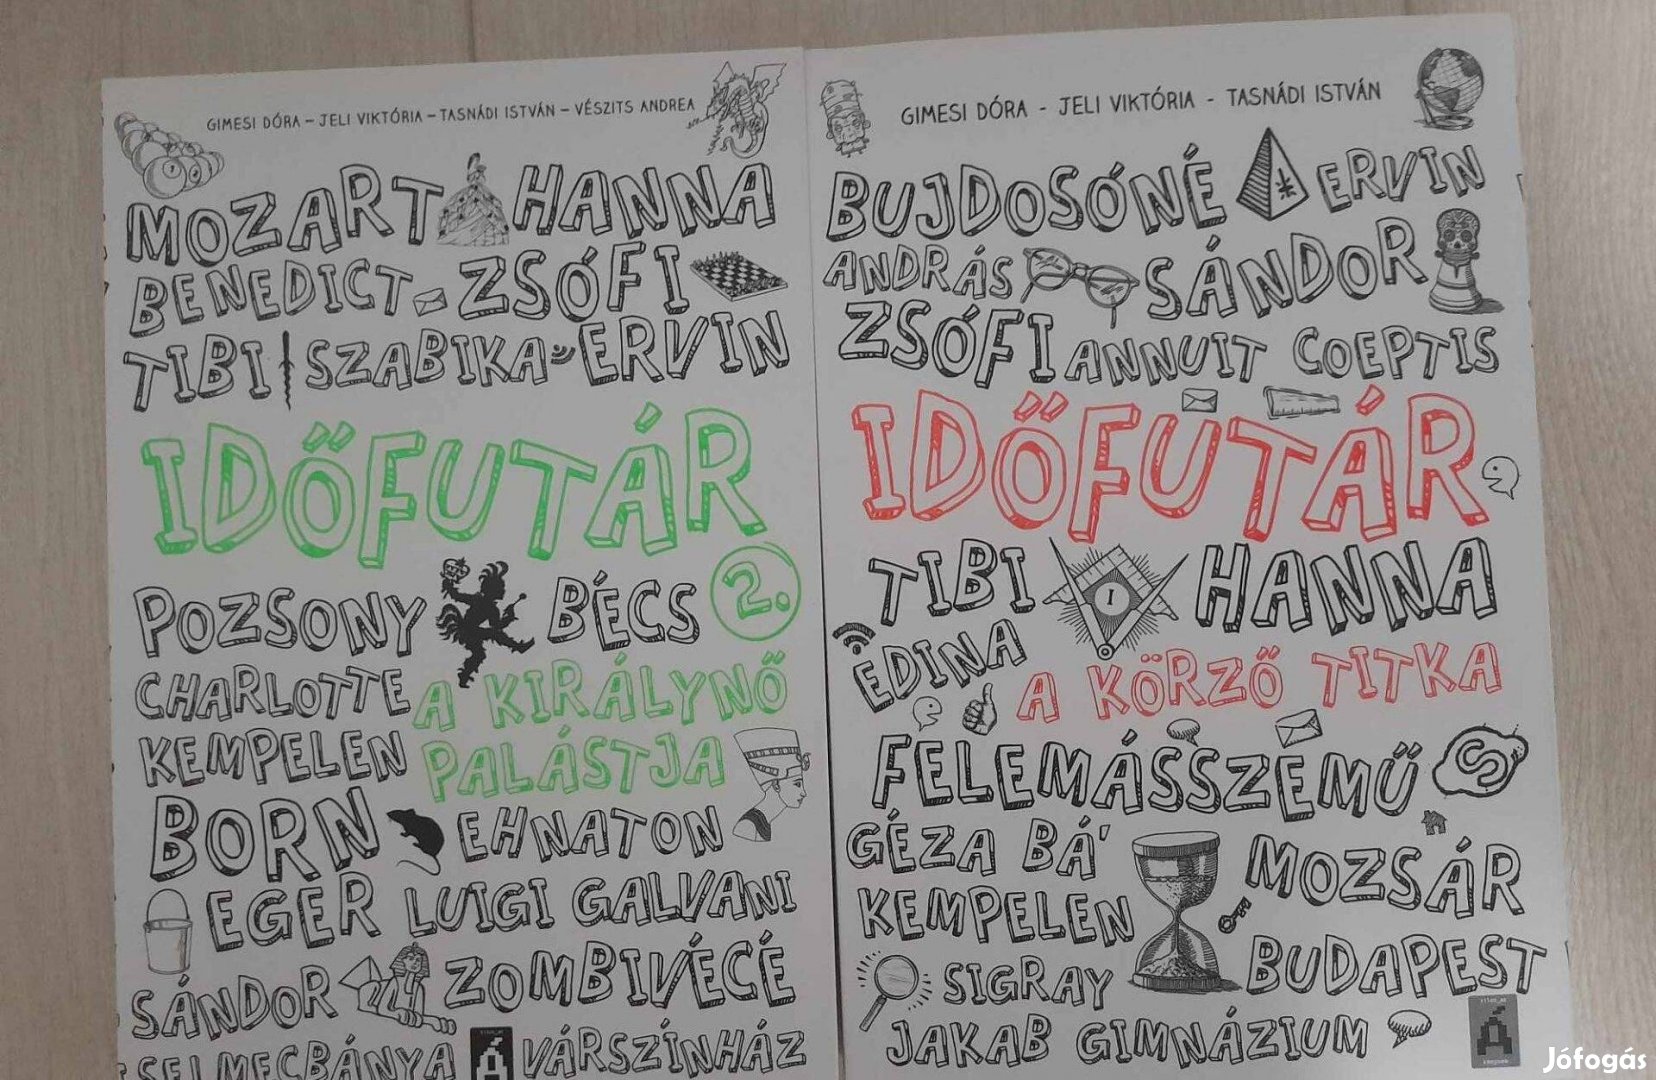 GIMESI DÓRA – JELI VIKTÓRIA – TASNÁDI ISTVÁN – VÉSZITS ANDREA
MOZART HANNA
BENEDICT ZSÓFI
TIBI SZABIKA ERVIN
IDŐFUTÁR
2.
POZSONY BÉCS
CHARLOTTE A KIRÁLYNŐ
KEMPELEN PALÁSTJA
BORN EHNATON
EGER LUIGI GALVANI
SÁNDOR ZOMBIVÉCÉ
SELMECBÁNYA VÁRSZÍNHÁZ
GIMESI DÓRA - JELI VIKTÓRIA - TASNÁDI ISTVÁN
BUJDOSÓNÉ ERVIN
ANDRÁS SÁNDOR
ZSÓFI ANNUIT COEPTIS
IDŐFUTÁR
TIBI HANNA
EDINA A KÖRZŐ TITKA
FELEMÁSSZEMŰ
GÉZA BÁ'
KEMPELEN MOZSÁR
SIGRAY BUDAPEST
JAKAB GIMNÁZIUM
Á
Á
Jófogás